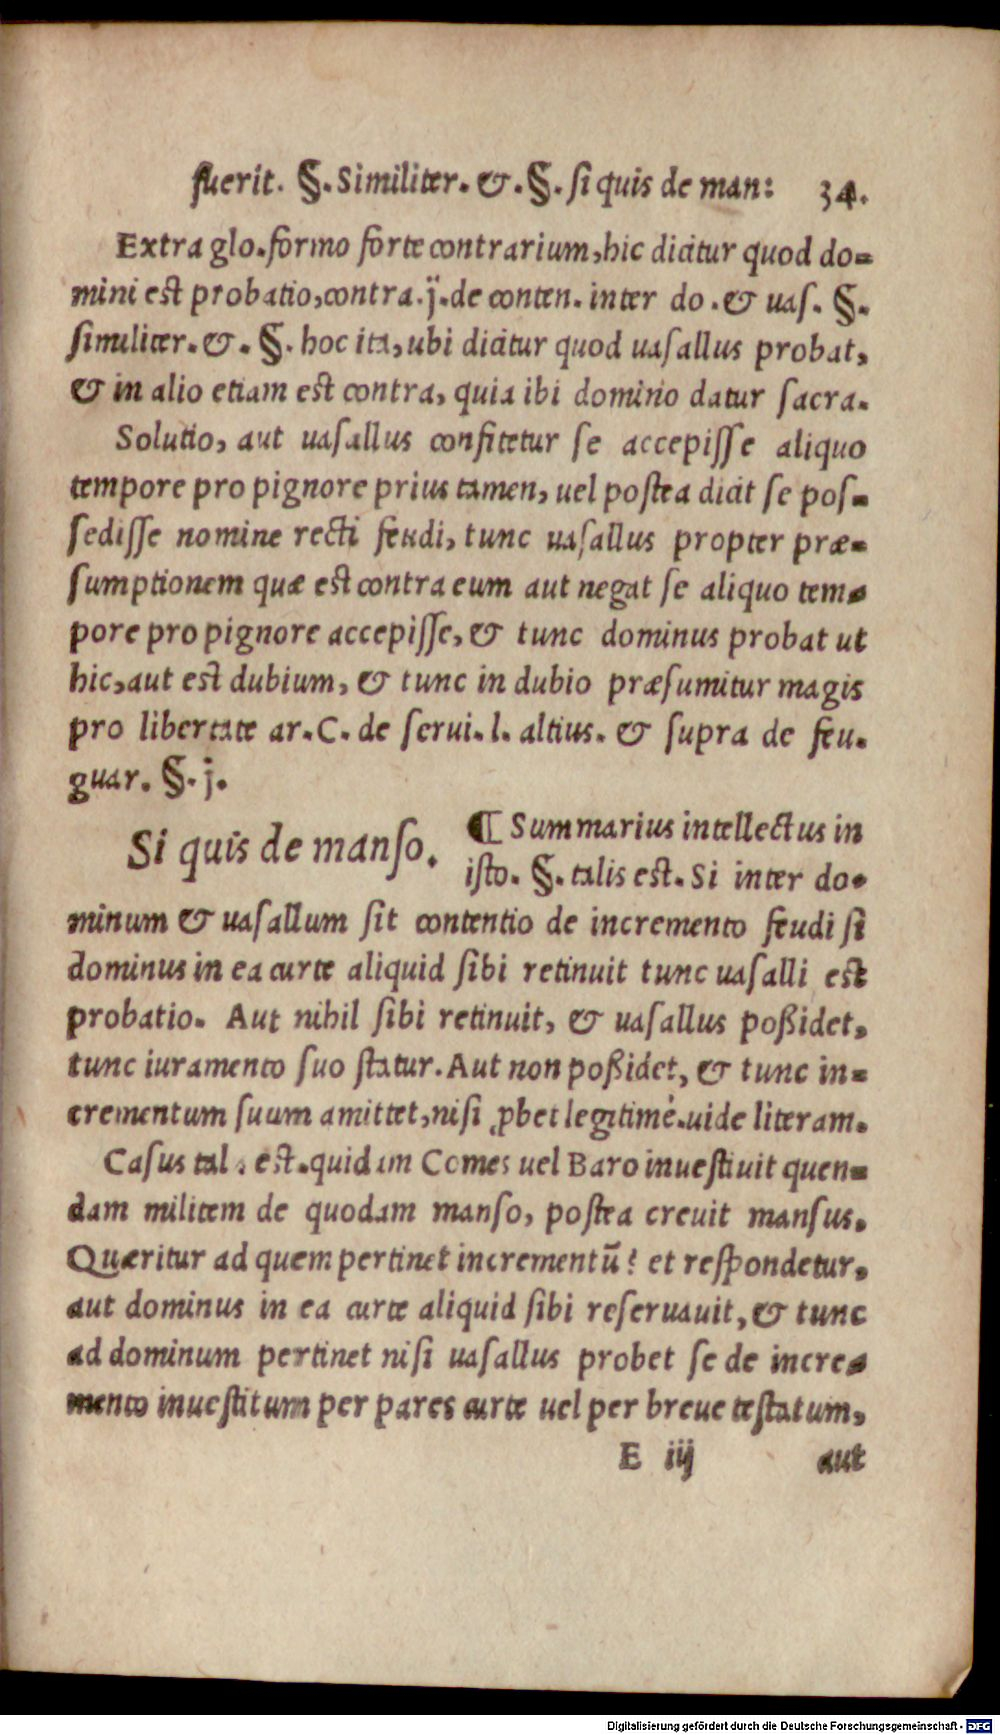 fuerit. §. Similiter. &. §. ſi quis de man: 34.
Extra glo. formo forte contrarium, hic dicitur quod do=
mini est probatio, contra. ij. de conten. inter do. & uaſ. §.
ſimiliter. &. §. hoc ita, ubi dicitur quod uaſallus probat,
& in alio etiam est contra, quia ibi domino datur ſacra.
Solutio, aut uaſallus confitetur ſe accepiſſe aliquo
tempore pro pignore prius tamen, uel poſtea dicit ſe poſ=
ſediſſe nomine recti feudi, tunc uaſallus propter præ=
ſumptionem quæ est contra eum aut negat ſe aliquo tem=
pore pro pignore accepiſſe, & tunc dominus probat ut
hic, aut est dubium, & tunc in dubio præſumitur magis
pro libertate ar. C. de ſerui. l. altius. & ſupra de feu.
guar. §. j.
Si quis de manſo.
¶ Summarius intellectus in
iſto. §. talis est. Si inter do=
minum & uaſallum ſit contentio de incremento feudi ſi
dominus in ea curte aliquid ſibi retinuit tunc uaſalli est
probatio. Aut nihil ſibi retinuit, & uaſallus poßidet,
tunc iuramento ſuo ſtatur. Aut non poßidet, & tunc in=
crementum ſuum amittet, niſi ꝓbet legitimé. uide literam.
Caſus tal est. quidam Comes uel Baro inueſtiuit quen=
dam militem de quodam manſo, poſtea creuit manſus.
Quæritur ad quem pertinet incrementū? et reſpondetur,
aut dominus in ea curte aliquid ſibi reſeruauit, & tunc
ad dominum pertinet niſi uaſallus probet ſe de incre=
mento inueſtitum per pares curte uel per breue teſtatum,
E iij aut
Digitalisierung gefördert durch die Deutsche Forschungsgemeinschaft - DFG